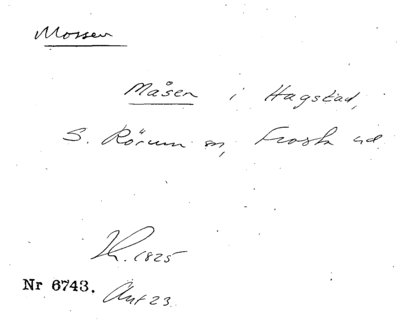 Mossen
Måsen i Hagstad,
S. Rörum sn, Frosta hd
1825
Nr 6743. Ant 23.